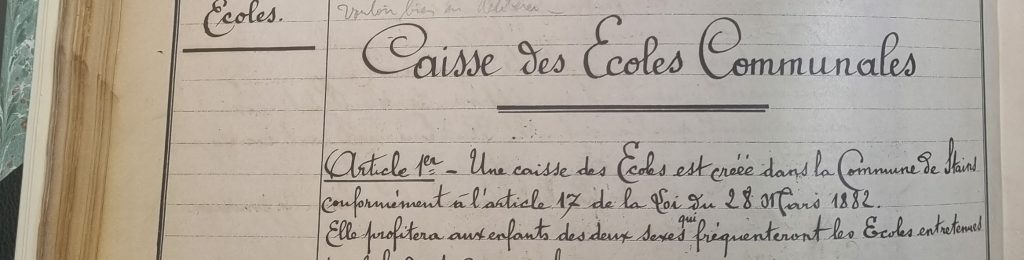 Ecoles.
Vouloir bien en délibérer
Caisse des Ecoles Communales
Article 1er - Une caisse des Ecoles est créée dans la Commune de Stains
conformément à l'article 17 de la Loi du 28 Mars 1882.
Elle profitera aux enfants des deux sexes qui fréquenteront les Ecoles entretenues